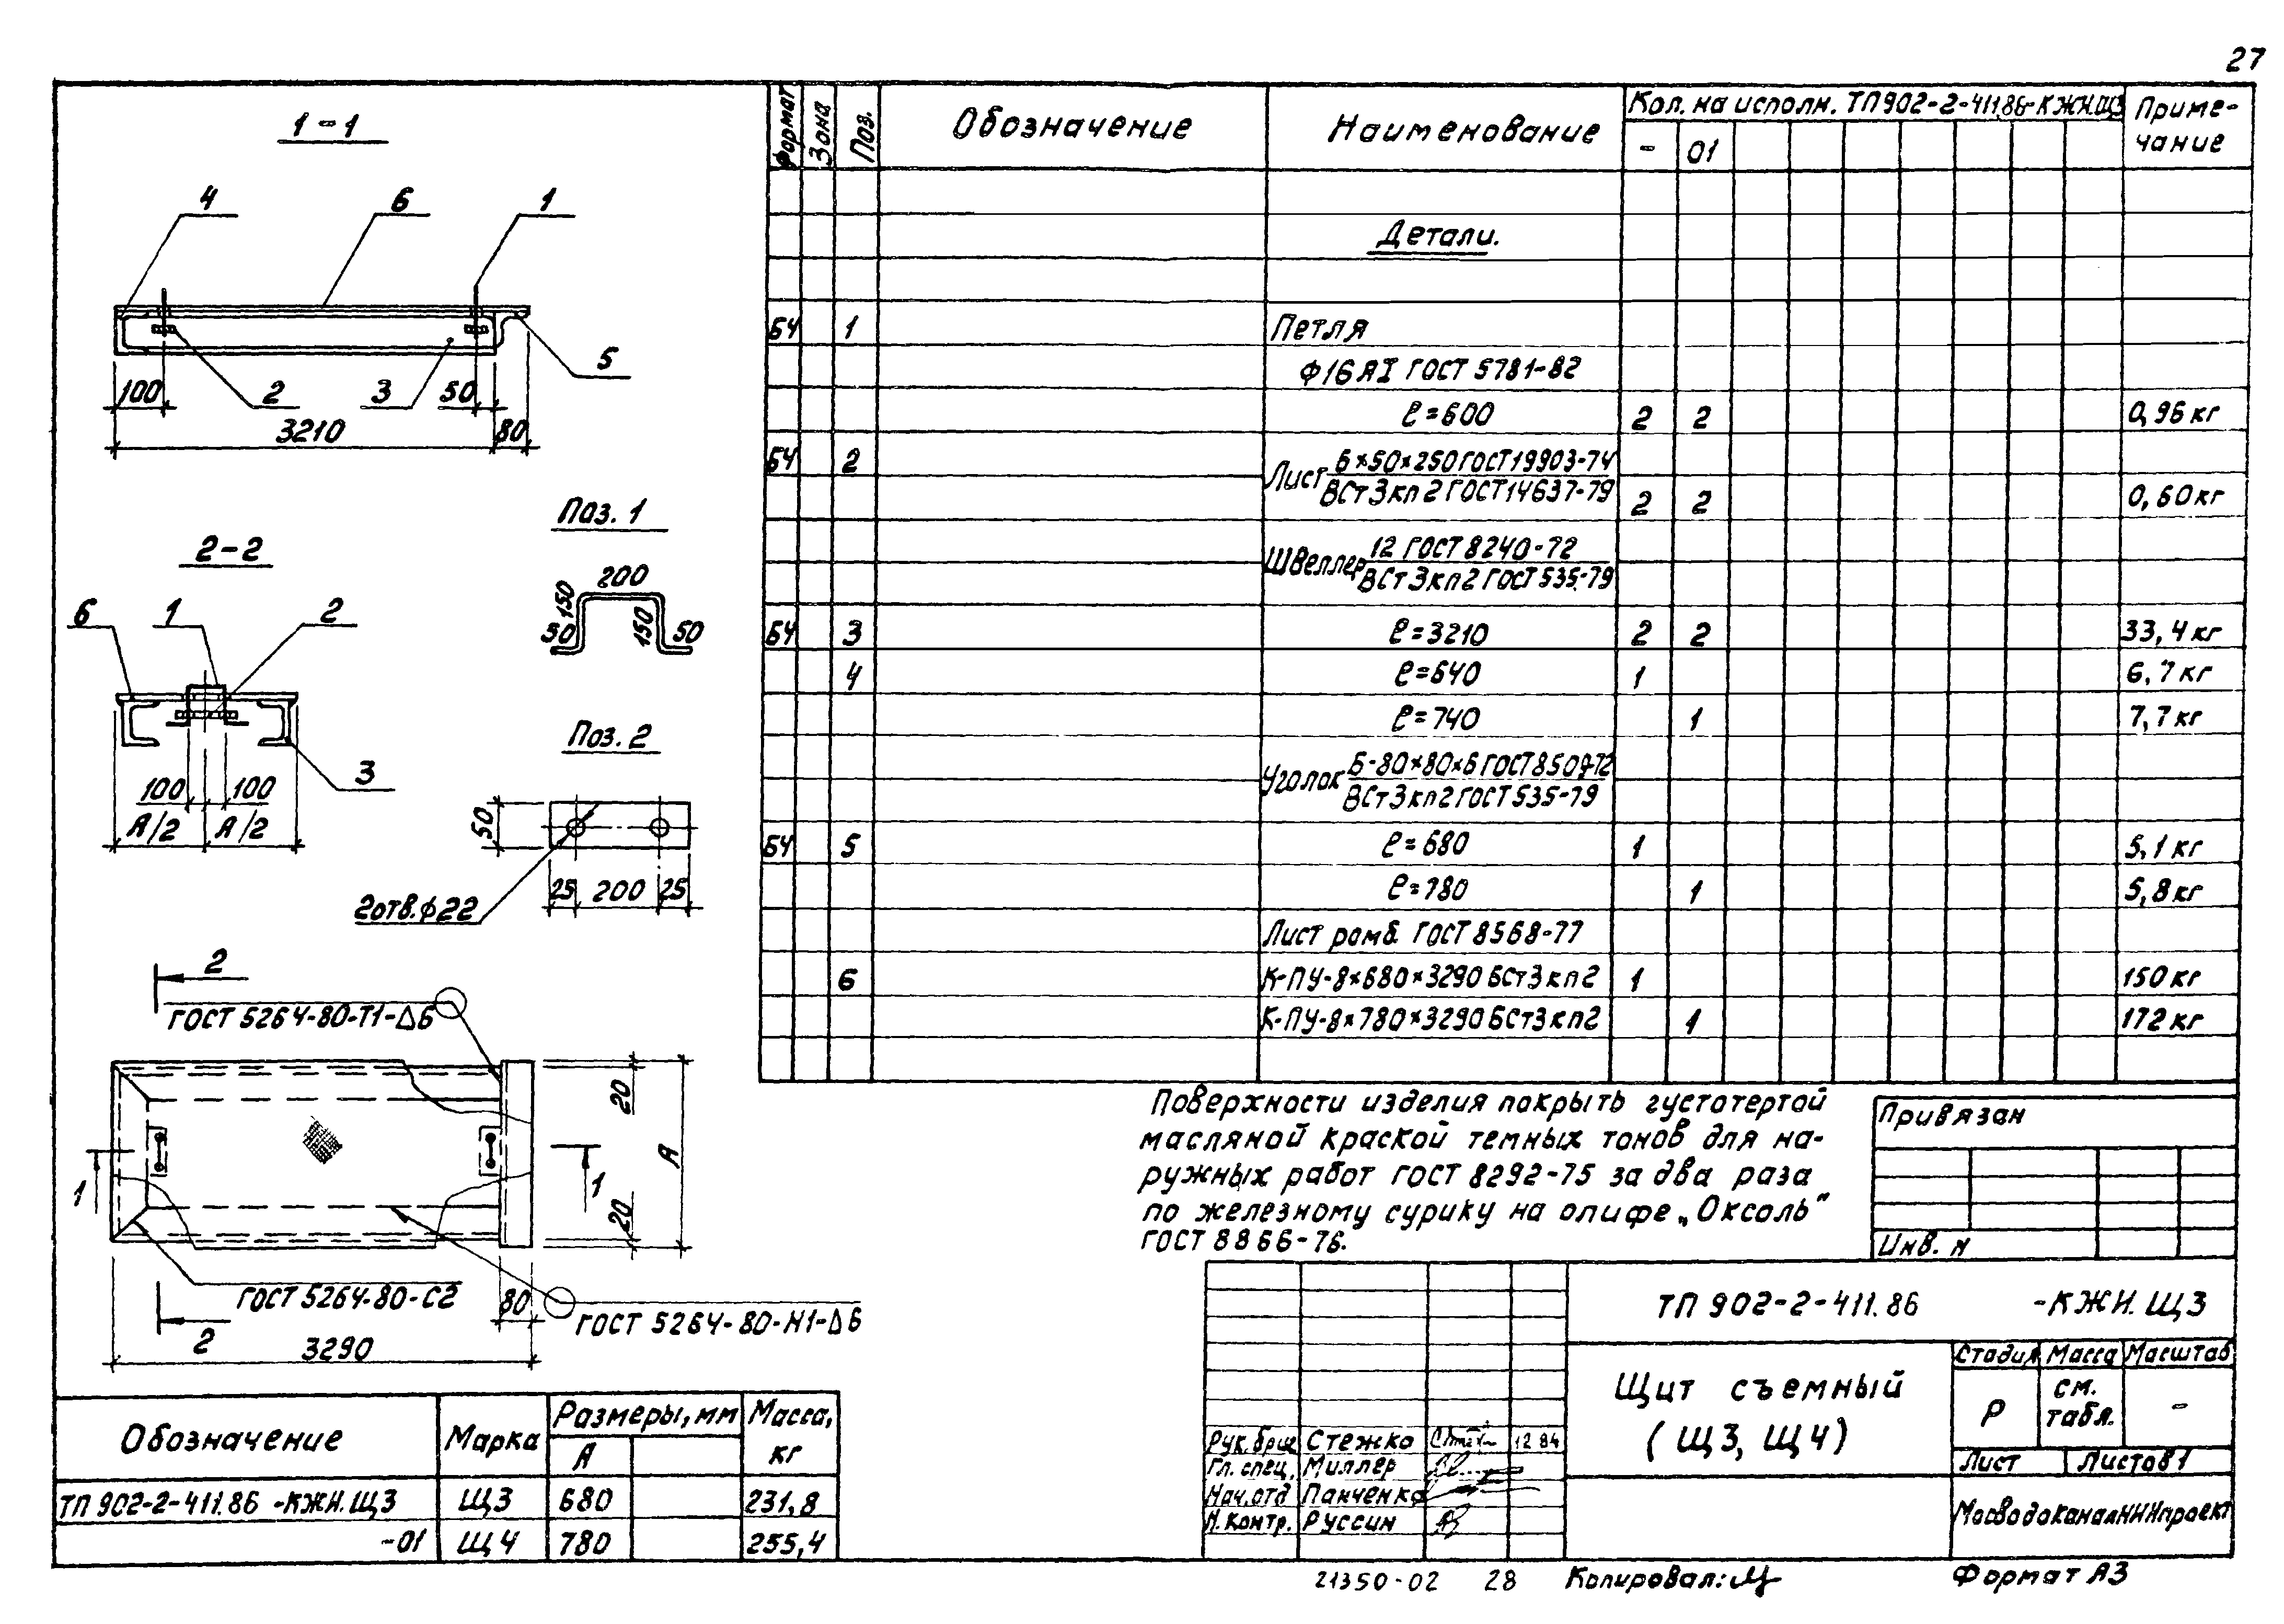 27
1-1
4 6 1
100 2 3 50 5
3210 80
2-2
6 1 2
3
100 100
А/2 А/2
Поз. 1
200
150 150
50 50
Поз. 2
50
25 200 25
2отв.ф22
2
ГОСТ 5264-80-Т1-Δ6
20
А
1 1
20
ГОСТ 5264-80-С2
80
ГОСТ 5264-80-Н1-Δ6
2
3290
Обозначение Марка Размеры, мм Масса, кг
А
ТП 902-2-411.86 -КЖИ.Щ3 Щ3 680 231,8
-01 Щ4 780 255,4
Формат Зона Поз. Обозначение Наименование Кол. на исполн. ТП902-2-411.86-КЖИ.Щ3 Приме-
чание
- 01
Детали.
БЧ 1 Петля
ф16АI ГОСТ 5781-82
ℓ=600 2 2 0,96кг
БЧ 2 Лист 6×50×250 ГОСТ 19903-74
ВСт3кп2 ГОСТ 14637-79 2 2 0,60кг
Швеллер 12 ГОСТ 8240-72
ВСт3кп2 ГОСТ 535-79
БЧ 3 ℓ=3210 2 2 33,4кг
4 ℓ=640 1 6,7кг
ℓ=740 1 7,7кг
Уголок Б-80×80×6 ГОСТ 8509-72
ВСт3кп2 ГОСТ 535-79
БЧ 5 ℓ=680 1 5,1кг
ℓ=780 1 5,8кг
Лист ромб. ГОСТ 8568-77
6 К-ПУ-8×680×3290 БСт3кп2 1 150кг
К-ПУ-8×780×3290 БСт3кп2 1 172кг
Поверхности изделия покрыть густотертой
масляной краской темных тонов для на-
ружных работ ГОСТ 8292-75 за два раза
по железному сурику на олифе „Оксоль"
ГОСТ 8866-76.
Привязан
Инв. №
ТП 902-2-411.86 -КЖИ.Щ3
Щит съемный
(Щ3, Щ4)
Стадия Масса Масштаб
Р см.
табл. -
Лист Листов 1
МосводоканалНИИпроект
Рук.бриг. Стежко 12.84
Гл. спец. Миллер
Нач.отд. Панченко
Н.контр. Руссин
21350-02 28 Копировал: Формат А3